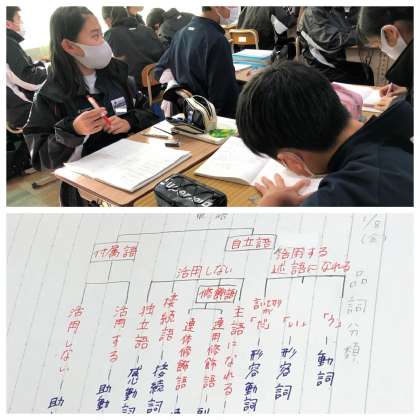 1/8
(金)
品詞分類
自立語
付属語
活用する
述語になれる
活用しない
修飾語
「う」ー動詞
「い」ー形容詞
言い切りが「だ」ー形容動詞
主語になれる
連用修飾語ー副
連体修飾語
接続語ー接続詞
独立語ー感動詞
活用するー助動
活用しないー助